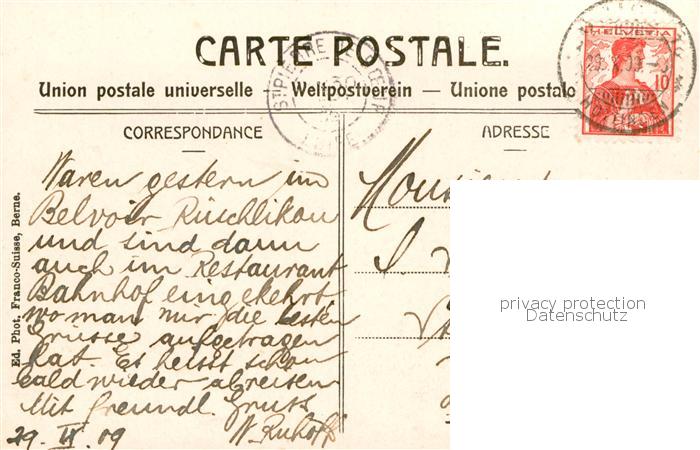 CARTE POSTALE.
Union postale universelle — Weltpostverein — Unione postale
CORRESPONDANCE
ADRESSE
HELVETIA
10
Waren gestern im
Belvoir Rüschlikon
und sind dann
auch im Restaurant
Bahnhof eingekehrt,
wo man nur die besten
Grüsse aufgetragen
hat. Es heisst schon
bald wieder abreisen
Mit freundl. Gruss
29. IX 09
Monsieur
Ed. Phot. Franco-Suisse, Berne.
privacy protection
Datenschutz